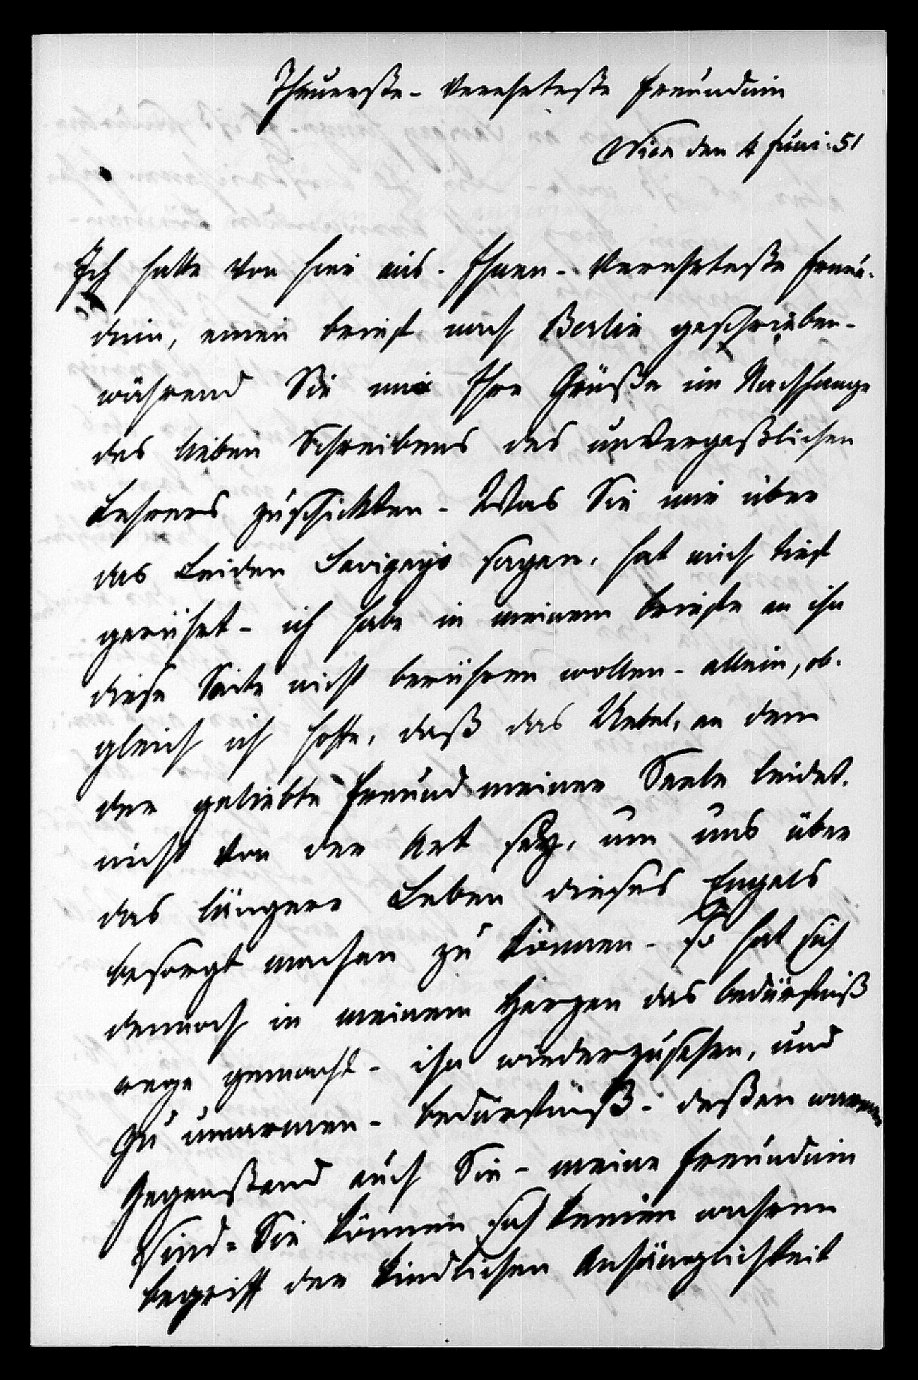 Theuerste - Verehrteste Freunduin
Wien den 4 Juni. 51
Ich hatte von hier aus - Ihnen - Verehrteste Freun-
duin, einen brief nach Berlin geschrieben -
während Sie mir Ihre Grüße im Nachhange
des lieben Schreibens des unvergeßlichen
Lehrers zuschickten - Was Sie mir über
das Leiden Savignys sagen, hat mich tief
gerührt - ich habe in meinem briefe an ihn
diese Saite nicht berühren wollen - allein, ob-
gleich ich hoffe, daß das Uebel, an dem
der geliebte Freund meiner Seele leidet,
nicht von der Art sey, um uns über
das längere Leben dieses Engels
besorgt machen zu können - so hat sich
dennoch in meinem Herzen das bedürfniß
rege gemacht - ihn wiederzusehen, und
zu umarmen - bedürfniß - deßen
Gegenstand auch Sie - meine Freunduin
Sind - Sie können sich keinen wahren
begriff der kindlichen Anhänglichkeit